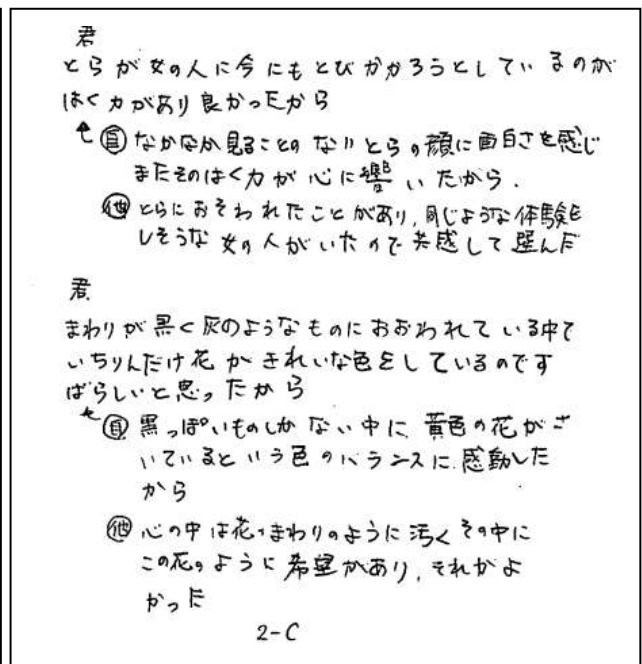 君
とらが女の人に今にもとびかかろうとしているのが
はく力があり良かったから
↑ 自 なかなか見ることのないとらの顔に面白さを感じ
またそのはく力が心に響いたから.
他 とらにおそわれたことがあり,同じような体験を
しそうな女の人がいたので共感して選んだ
君
まわりが黒く灰のようなものにおおわれている中で
いちりんだけ花がきれいな色をしているのです
ばらしいと思ったから
↑ 自 黒っぽいものしかない中に、黄色の花がさ
いているという色のバランスに感動した
から
他 心の中は花のまわりのように汚くその中に
この花のように希望があり,それがよ
かった
2-C